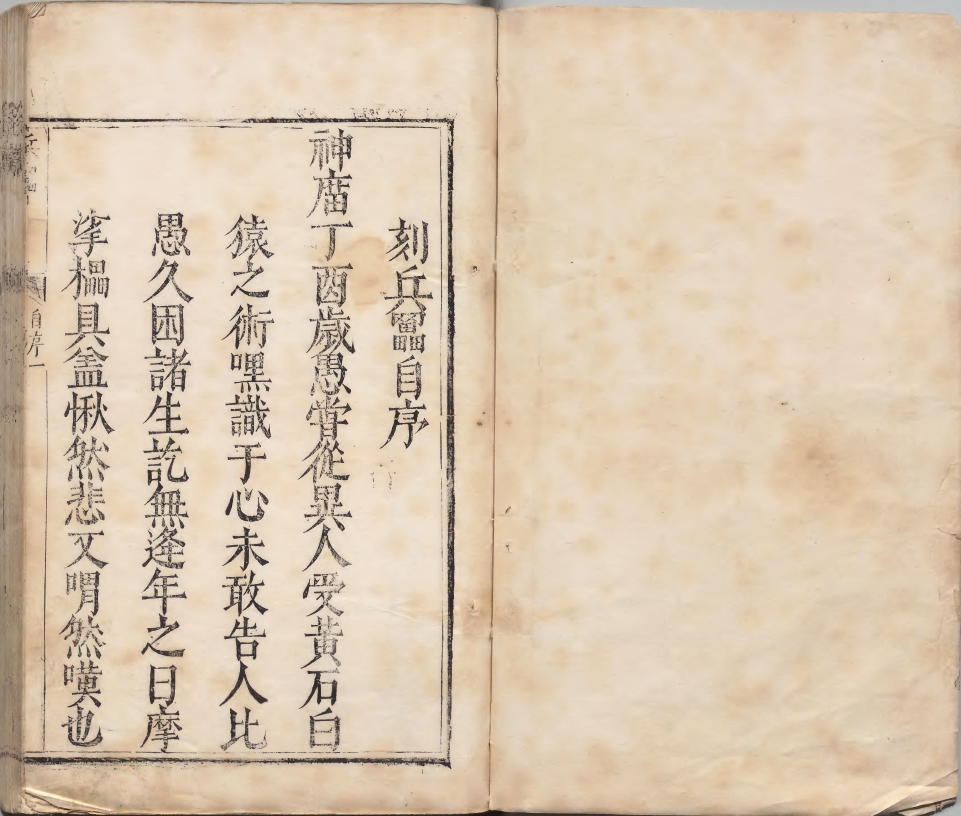 刻兵自序
神庿丁酉歲愚甞從異人受黃石白
猿之術嘿識于心未敢告人比
愚久困諸生訖無逢年之日摩
挲櫑具益愀然悲又喟然嘆也
自序一